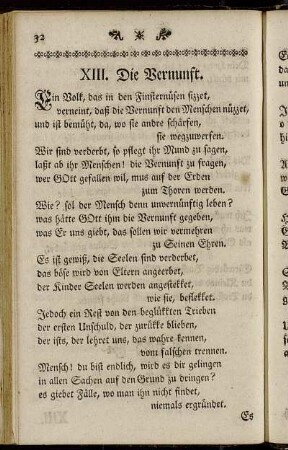 32
XIII. Die Vernunft.
Ein Volk, das in den Finsternüsen sizzet,
verneint, daß die Vernunft den Menschen nüzzet,
und ist bemüht, da, wo sie andre schärfen,
sie wegzuwerfen.
Wir sind verderbt, so pflegt ihr Mund zu sagen,
laßt ab ihr Menschen! die Vernunft zu fragen,
wer GOtt gefallen wil, mus auf der Erden
zum Thoren werden.
Wie? sol der Mensch denn unvernünftig leben?
was hätte GOtt ihm die Vernunft gegeben,
was Er uns giebt, das sollen wir vermehren
zu Seinen Ehren.
Es ist gewiß, die Seelen sind verderbet,
das böse wird von Eltern angeerbet,
der Kinder Seelen werden angestekket,
wie sie, beflekket.
Jedoch ein Rest von den beglükkten Trieben
der ersten Unschuld, der zurükke blieben,
der ists, der lehret uns, das wahre kennen,
vom falschen trennen.
Mensch! du bist endlich, wird es dir gelingen
in allen Sachen auf den Grund zu dringen?
es giebet Fälle, wo man ihn nicht findet,
niemals ergründet.
Es